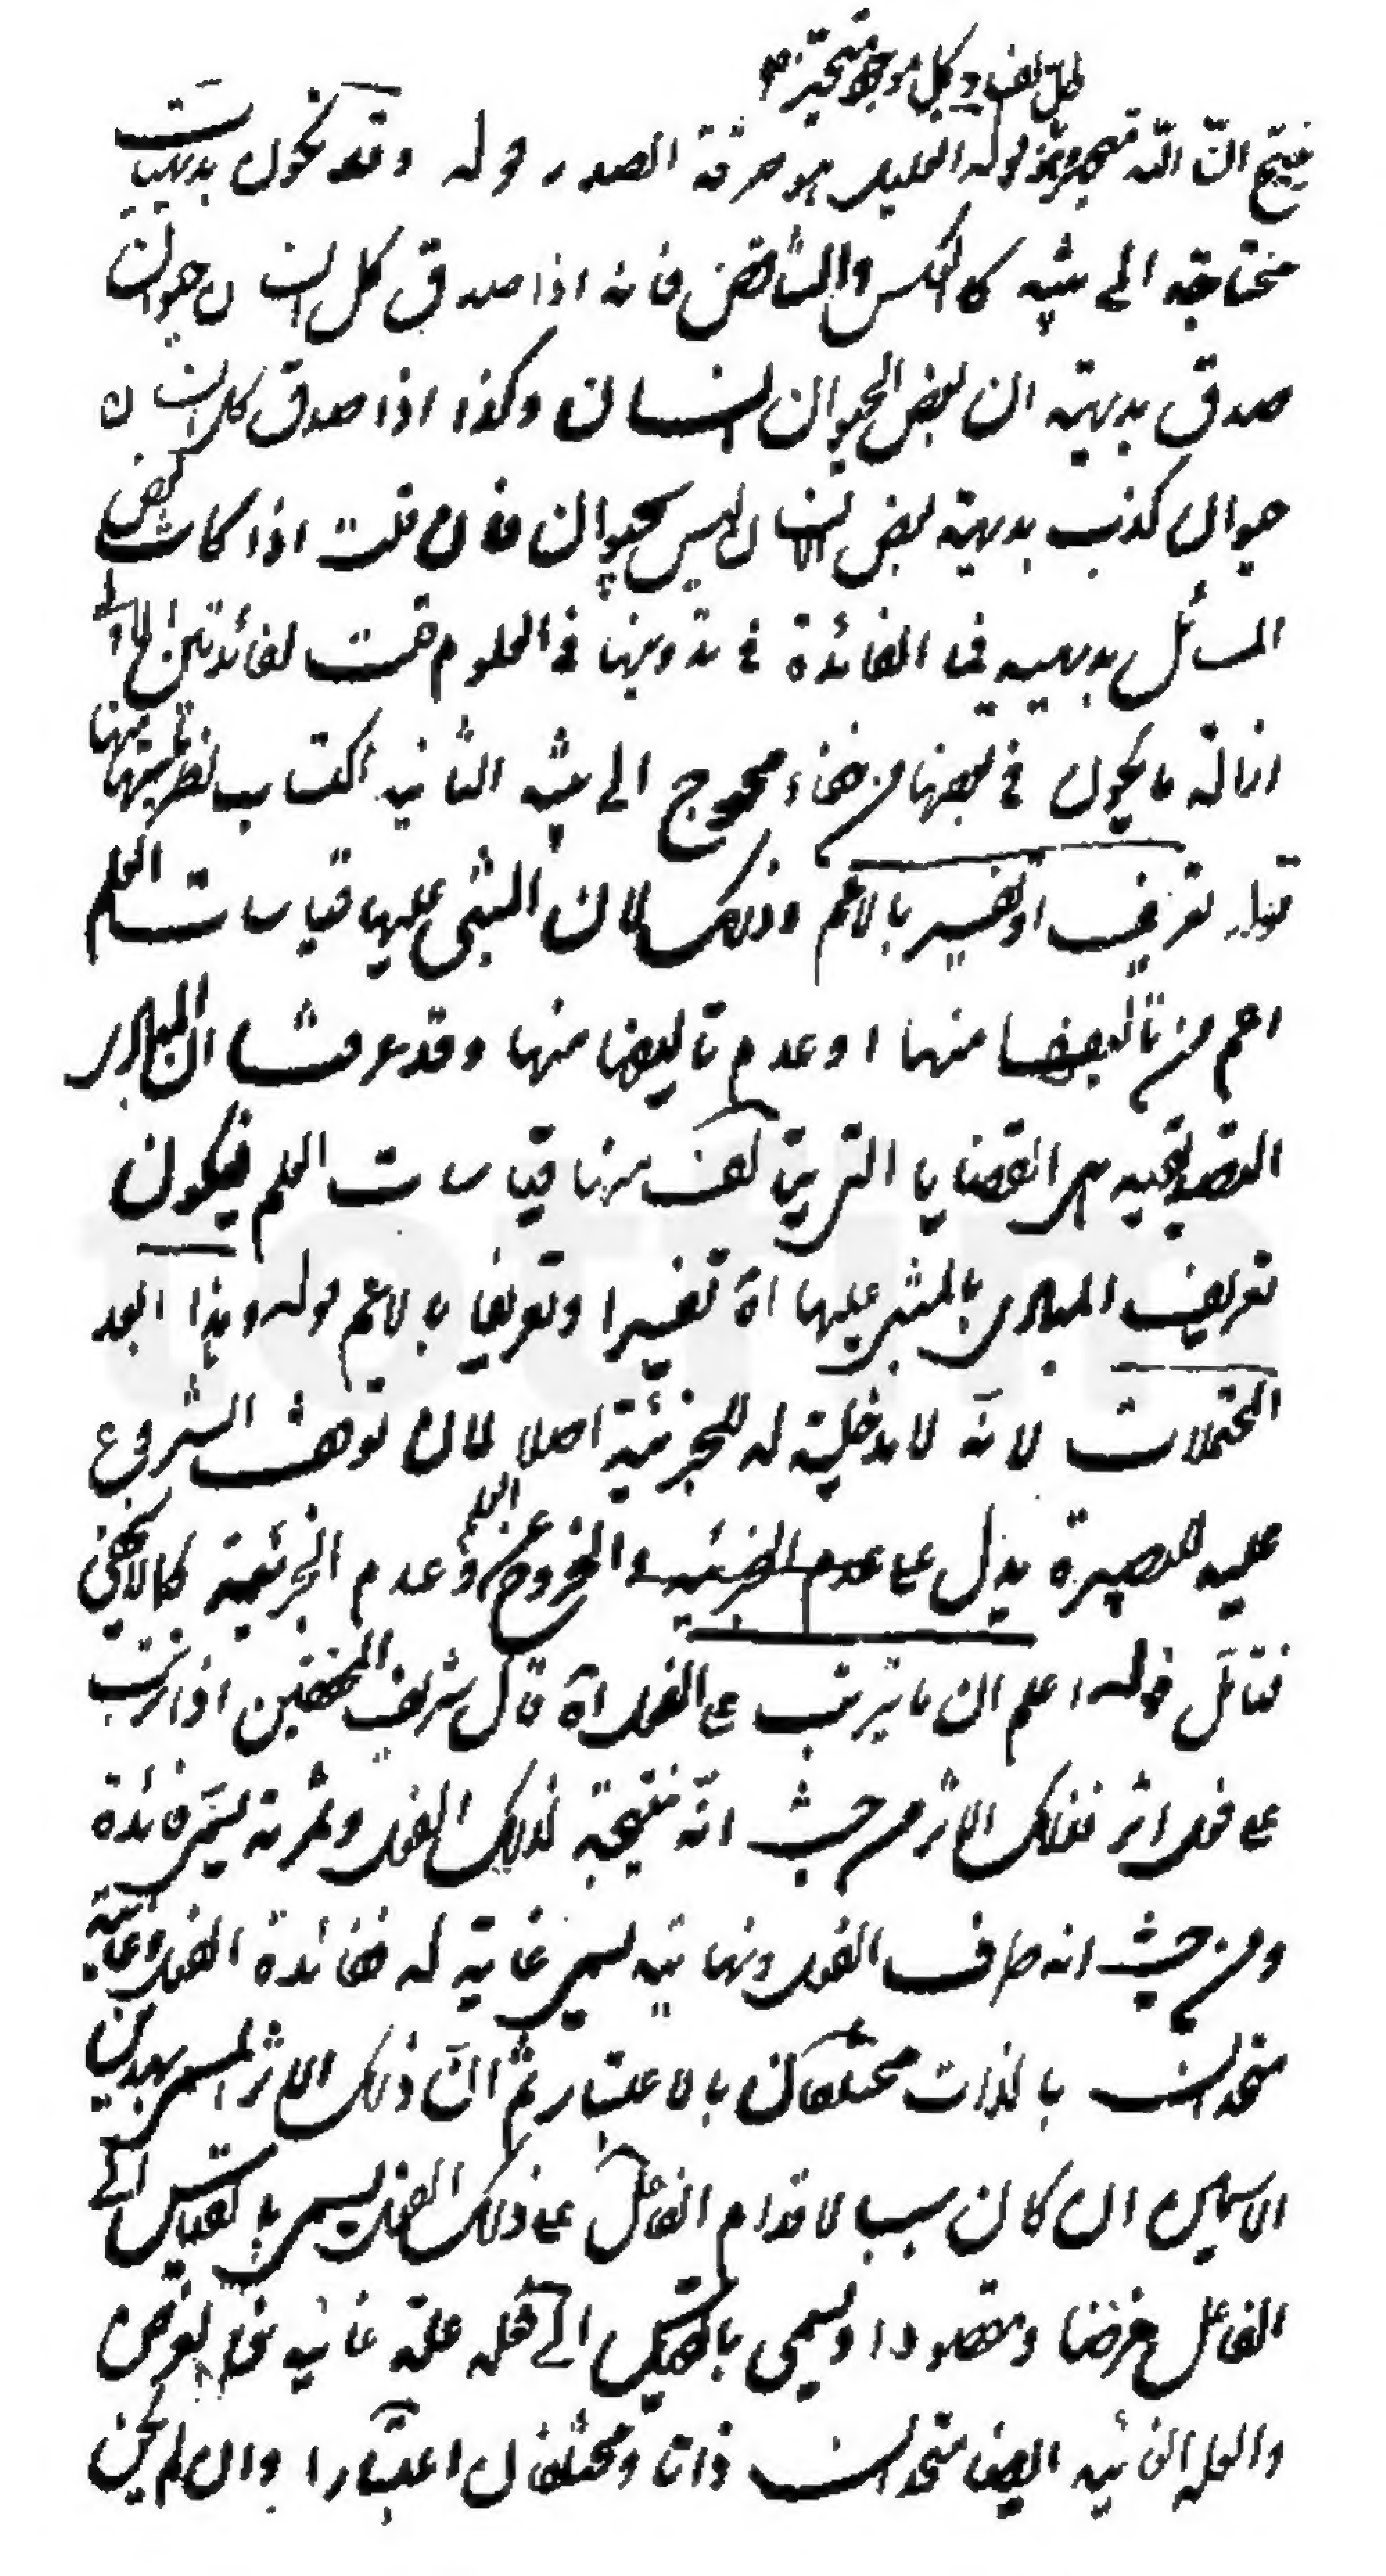 وكل موجود متحيز
ينتج ان الله متحيز قوله الحليل هو حرقة الصدر قوله وقد تكون بديهيات
محتاجة الى تنبيه كالعكس والتناقض فانه اذا صدق كل انسان حيوان
صدق بديهية ان بعض الحيوان انسان وكذا اذا صدق كل انسان
حيوان كذب بديهية بعض الانسان ليس بحيوان فان قلت اذا كانت بعض
المسائل بديهية فما الفائدة في تدوينها في العلوم قلت لفائدتين الاولى
ازالة ما يكون في بعضها من خفاء محوج الى تنبيه الثانية اكتساب نظرياتها منها
قوله تعريف او تفسير بالاعم وذلك لان المبتنى عليها قياسات العلم
اعم من تأليفها منها او عدم تأليفها منها وقد عرفت ان المبادى
التصديقية هى القضايا التى يتألف منها قياسات العلم فيكون
تعريف المبادى بالمبتنى عليها اه تفسيرا وتعريفا بالاعم قوله وهذا ابعد
المحتملات لانه لا مدخلية له للجزئية اصلا لان توقف الشروع
عليه للبصيرة يدل على الخروج عن العلم وعدم الجزئية كما لا يخفى
فتأمل قوله اعلم ان ما يترتب على الفعل اه قال شريف المحققين اذا ترتب
على فعل اثر فذلك الاثر من حيث انه نتيجة لذلك الفعل وثمرته يسمى فائدة
ومن حيث انه طرف الفعل ونهايته يسمى غاية له ففائدة الفعل وغايته
متحدان بالذات مختلفان بالاعتبار ثم ان ذلك الاثر المسمى بهذين
الاسمين ان كان سببا لاقدام الفاعل على ذلك الفعل يسمى بالقياس الى
الفاعل غرضا ومقصودا ويسمى بالقياس الى فعله علة غائية فالغرض
والعلة الغائية ايضا متحدان ذاتا ومختلفان اعتبارا وان لم يكن